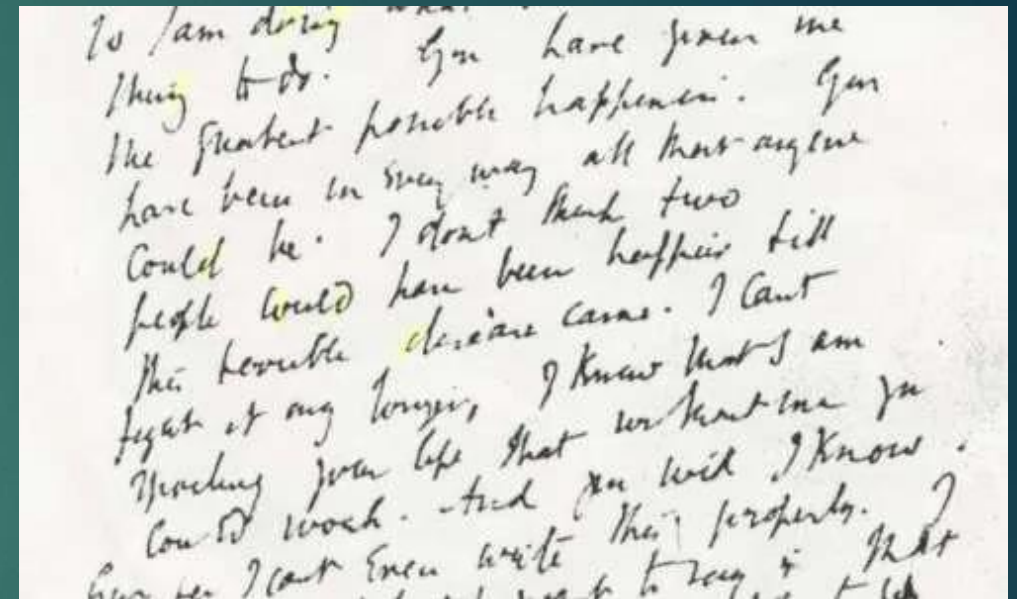 So I am doing what
thing to do. You have given me
the greatest possible happiness. You
have been in every way all that anyone
could be. I dont think two
people could have been happier till
this terrible disease came. I cant
fight it any longer, I know that I am
spoiling your life that without me you
could work. And you will I know.
you see I cant even write this properly. I
to say is that